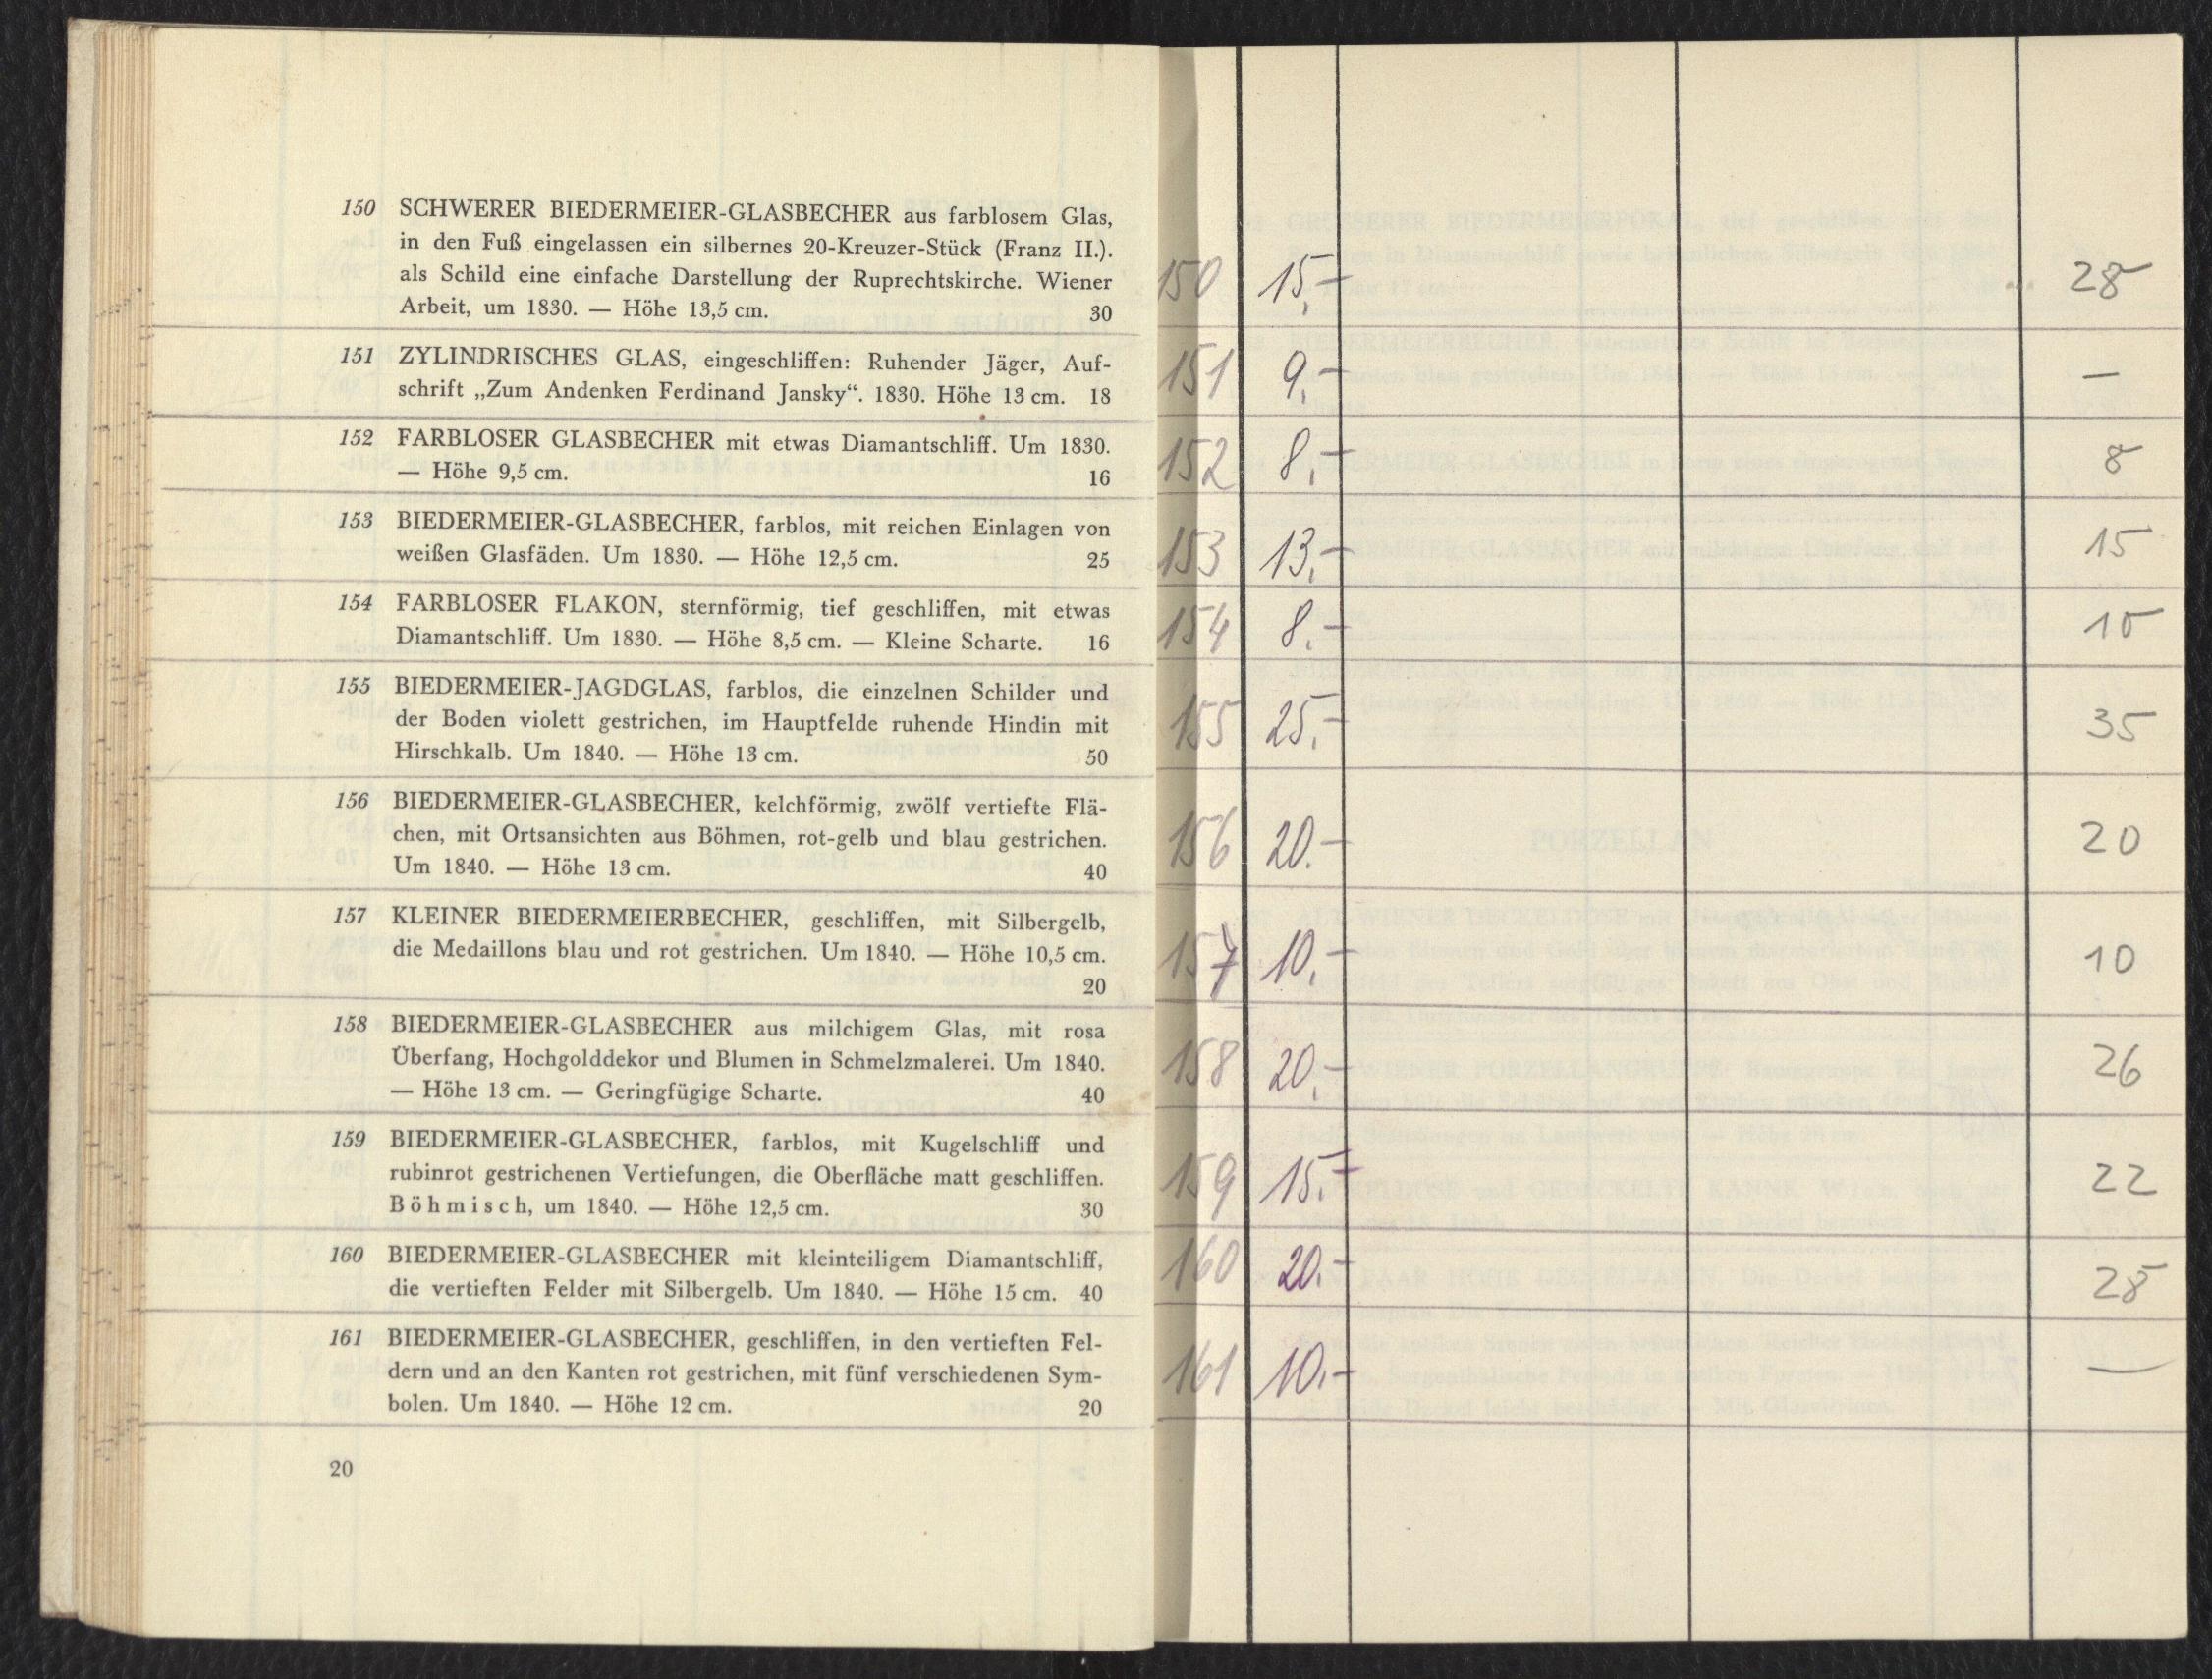 150 SCHWERER BIEDERMEIER-GLASBECHER aus farblosem Glas,
in den Fuß eingelassen ein silbernes 20-Kreuzer-Stück (Franz II.).
als Schild eine einfache Darstellung der Ruprechtskirche. Wiener
Arbeit, um 1830. — Höhe 13,5 cm. 30
151 ZYLINDRISCHES GLAS, eingeschliffen: Ruhender Jäger, Auf-
schrift „Zum Andenken Ferdinand Jansky“. 1830. Höhe 13 cm. 18
152 FARBLOSER GLASBECHER mit etwas Diamantschliff. Um 1830.
— Höhe 9,5 cm. 16
153 BIEDERMEIER-GLASBECHER, farblos, mit reichen Einlagen von
weißen Glasfäden. Um 1830. — Höhe 12,5 cm. 25
154 FARBLOSER FLAKON, sternförmig, tief geschliffen, mit etwas
Diamantschliff. Um 1830. — Höhe 8,5 cm. — Kleine Scharte. 16
155 BIEDERMEIER-JAGDGLAS, farblos, die einzelnen Schilder und
der Boden violett gestrichen, im Hauptfelde ruhende Hindin mit
Hirschkalb. Um 1840. — Höhe 13 cm. 50
156 BIEDERMEIER-GLASBECHER, kelchförmig, zwölf vertiefte Flä-
chen, mit Ortsansichten aus Böhmen, rot-gelb und blau gestrichen.
Um 1840. — Höhe 13 cm. 40
157 KLEINER BIEDERMEIERBECHER, geschliffen, mit Silbergelb,
die Medaillons blau und rot gestrichen. Um 1840. — Höhe 10,5 cm.
20
158 BIEDERMEIER-GLASBECHER aus milchigem Glas, mit rosa
Überfang, Hochgolddekor und Blumen in Schmelzmalerei. Um 1840.
— Höhe 13 cm. — Geringfügige Scharte. 40
159 BIEDERMEIER-GLASBECHER, farblos, mit Kugelschliff und
rubinrot gestrichenen Vertiefungen, die Oberfläche matt geschliffen.
Böhmisch, um 1840. — Höhe 12,5 cm. 30
160 BIEDERMEIER-GLASBECHER mit kleinteiligem Diamantschliff,
die vertieften Felder mit Silbergelb. Um 1840. — Höhe 15 cm. 40
161 BIEDERMEIER-GLASBECHER, geschliffen, in den vertieften Fel-
dern und an den Kanten rot gestrichen, mit fünf verschiedenen Sym-
bolen. Um 1840. — Höhe 12 cm. 20
20
150 15,- 28
151 9,- —
152 8,- 8
153 13,- 15
154 8.- 10
155 25,- 35
156 20.- 20
157 10,- 10
158 20,- 26
159 15.- 22
160 20.- 28
161 10.- —